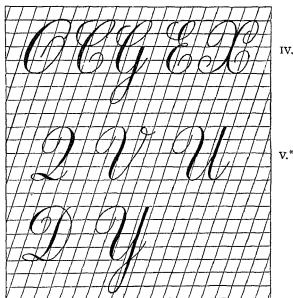 O C G E X IV.
Q V U V.*
D Y